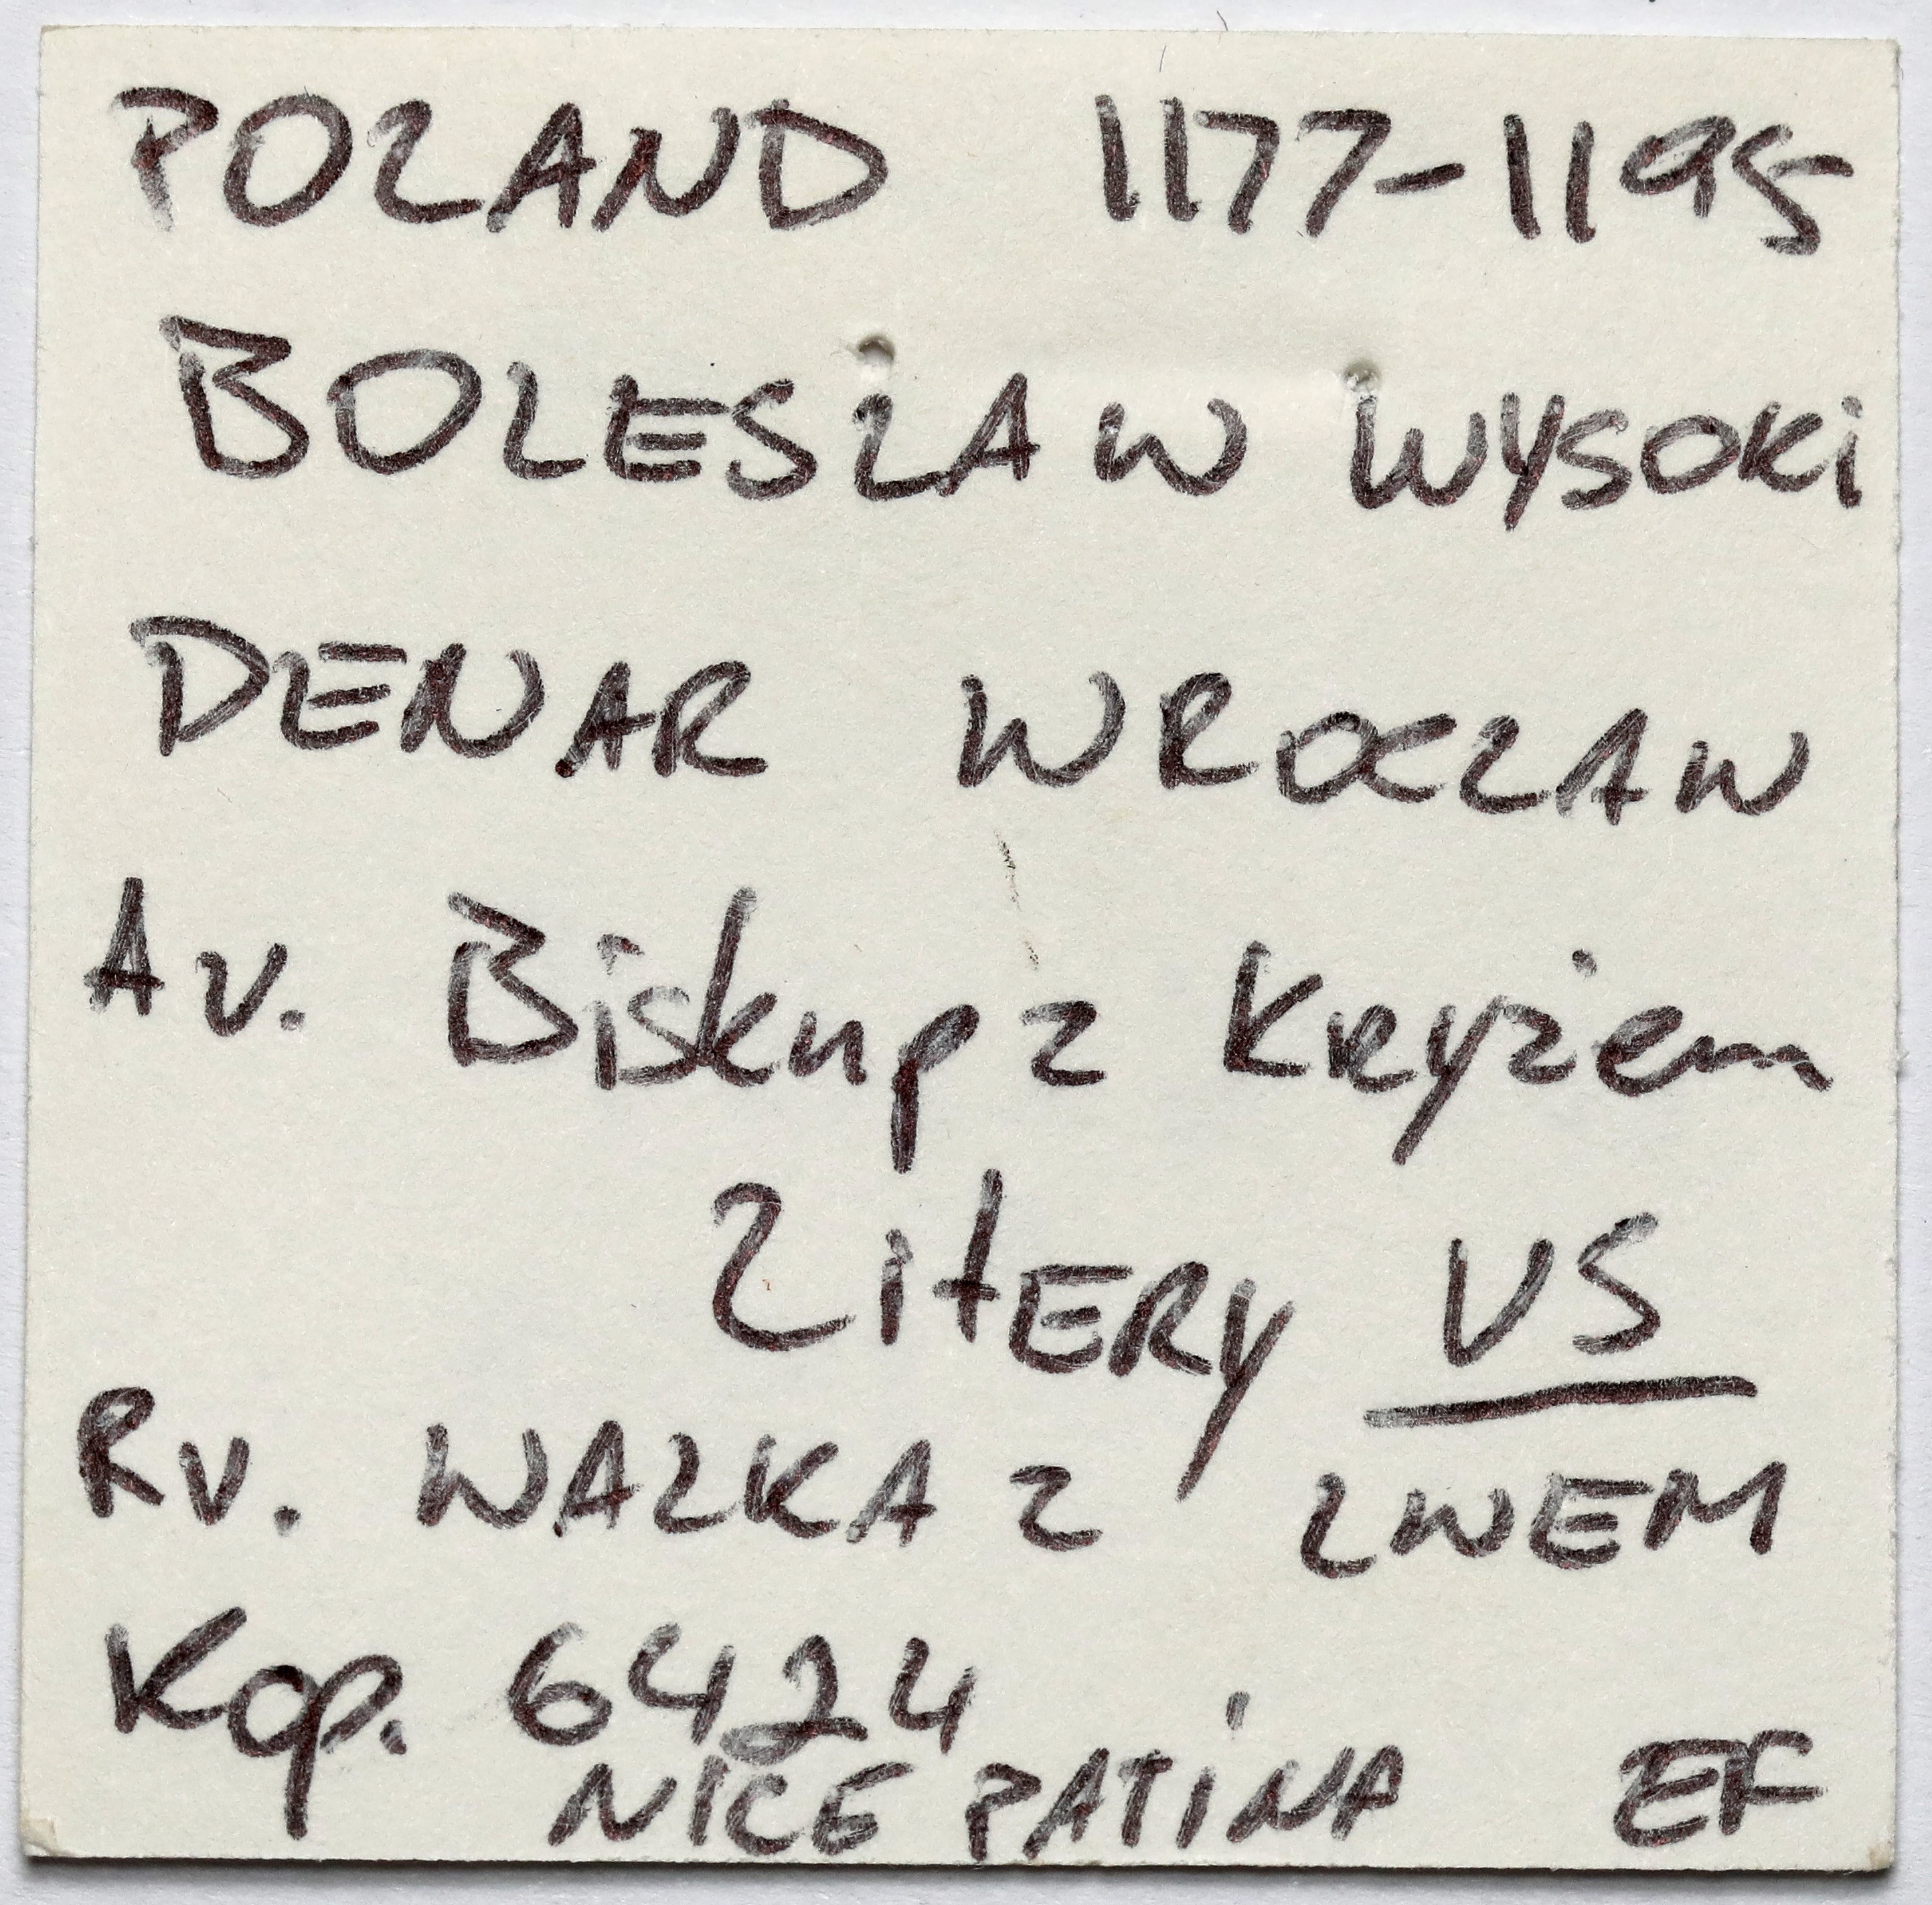 POLAND 1177-1195
BOLESLAW WYSOKi
DENAR WROCLAW
Av. Biskup z Kryżem
LitERy VS
Rv. WALKA z LWEM
Kop. 6424
NICE PATiNA EF